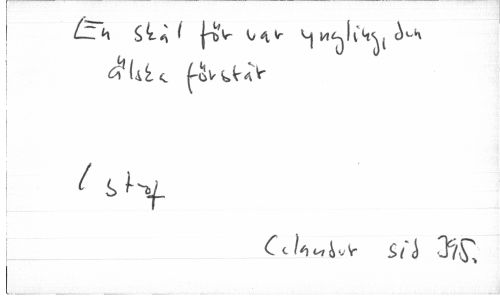 En skål för var yngling, den
älska förstår
1 strof
Celander sid 395.